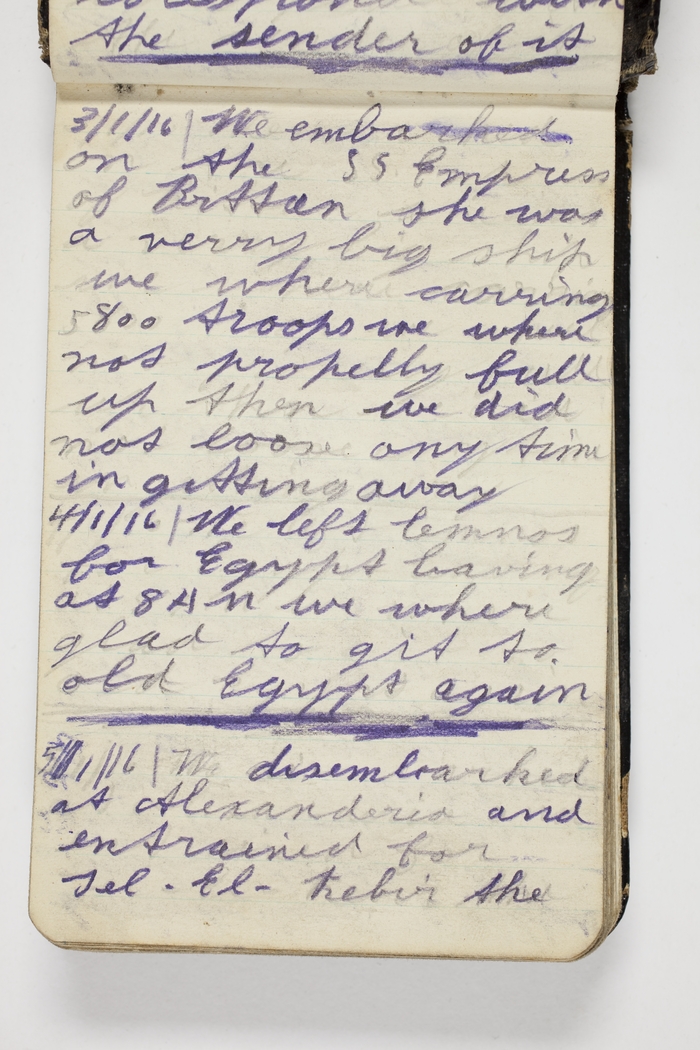 correspond with
the sender of it
3/1/16 | We embarked
on the SS Empress
of Brittan she was
a verry big ship
we where carring
5800 troops we where
not propelly full
up then we did
not loose any time
in gitting away
4/1/16 | We left lemnos
for Egypt leaving
at 8 AM we where
glad to git to
old Egypt again
/1/16 | We disembarked
at Alexanderia and
entrained for
Tel-El-Kebir the